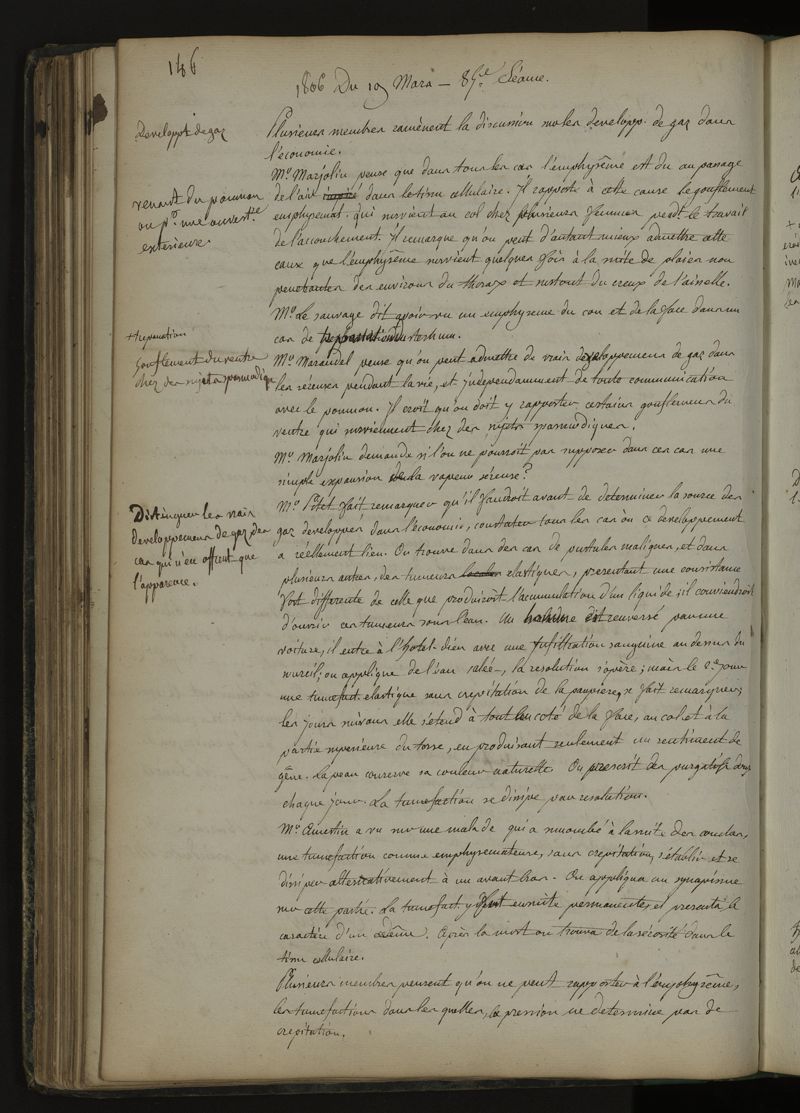 146
1806 Du 19 Mars — 85.e Séance.
Developpt de gaz
Plusieurs membres ramènent la discussion sur les developp. de gaz dans
l'économie.
Mr. Marjolin pense que dans tous les cas l'emphysême est du au passage
venant du poumon
ou pr. une ouvertre
exterieure.
de l'air dans le tissu cellulaire. Il rapporte à cette cause le gonflement
emphysemat. qui survient au col chez plusieurs femmes pendt le travail
de l'accouchement. Il remarque qu'on peut d'autant mieux admettre cette
cause que l'emphysême survient quelques fois à la suite de plaies non
penetrantes des environs du thorax et surtout du creux de l'aisselle.
Mr. Le sauvage dit avoir vu un emphyseme du cou et de la face dans un
+ trepanation
cas de du sternum.
Gonflement du ventre
chez des sujets spasmodiq
Mr. Marandel pense qu'on peut admettre de vrais developpemens de gaz dans
les séreuses pendant la vie, et independamment de toute communication
avec le poumon. Il croit qu'on doit y rapporter certains gonflemens du
ventre qui surviennent chez des sujets spasmodiques.
Mr. Marjolin demande si l'on ne pourroit pas supposer dans ces cas une
simple expansion de la vapeur séreuse?
Distinguer les vrais
developpemens de gaz des
cas qui n'en offrent que
l'apparence.
Mr. Petit fait remarquer qu'il faudroit avant de determiner la source des
gaz developpés dans l'économie, constater tous les cas où ce developpement
a réellement lieu. On trouve dans des cas de pustules malignes, et dans
plusieurs autres, des tumeurs locales elastiques, presentant une consistance
fort differente de celle que produiroit l'accumulation d'un liquide; il conviendroit
d'ouvrir ces tumeurs sous l'eau. Un homme est renversé par une
voiture, il entre à l'hotel-dieu avec une infiltration sanguine au dessus du
sourcil; on applique de l'eau salée, la resolution s'opère; mais le 2e jour
une tumefact. elastique sans crepitation de la paupiere, se fait remarquer;
les jours suivans elle s'étend à tout le coté de la face, au col et à la
partie superieure du torse, en produisant seulement un sentiment de
gêne. La peau conserve sa couleur naturelle. On prescrit des purgatifs doux
chaque jour. La tumefaction se dissipe par resolution.
Mr. a vu sur une malade qui a succombé à la suite des couches,
une tumefaction comme emphysemateuse, sans crepitation, s'établir et se
dissiper alternativement à un avant bras. On appliqua un synapisme
sur cette partie. La tumefact. y devint ensuite permanente, et presenta le
caractère d'un œdême. Après la mort on trouva de la sérosité dans le
tissu cellulaire.
Plusieurs membres pensent qu'on ne peut rapporter à l'emphysême,
les tumefactions dans les quelles, la pression ne determine pas de
crepitation.